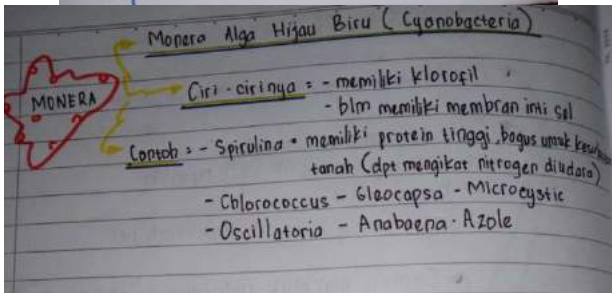 Monera Alga Hijau Biru (Cyanobacteria)
MONERA
Ciri-cirinya = - memiliki klorofil
- blm memiliki membran inti sel
Contoh = - Spirulina • memiliki protein tinggi, bagus untuk
tanah (dpt mengikat nitrogen diudara)
- Chlorococcus - Gleocapsa - Microcystic
- Oscillatoria - Anabaena - Azole